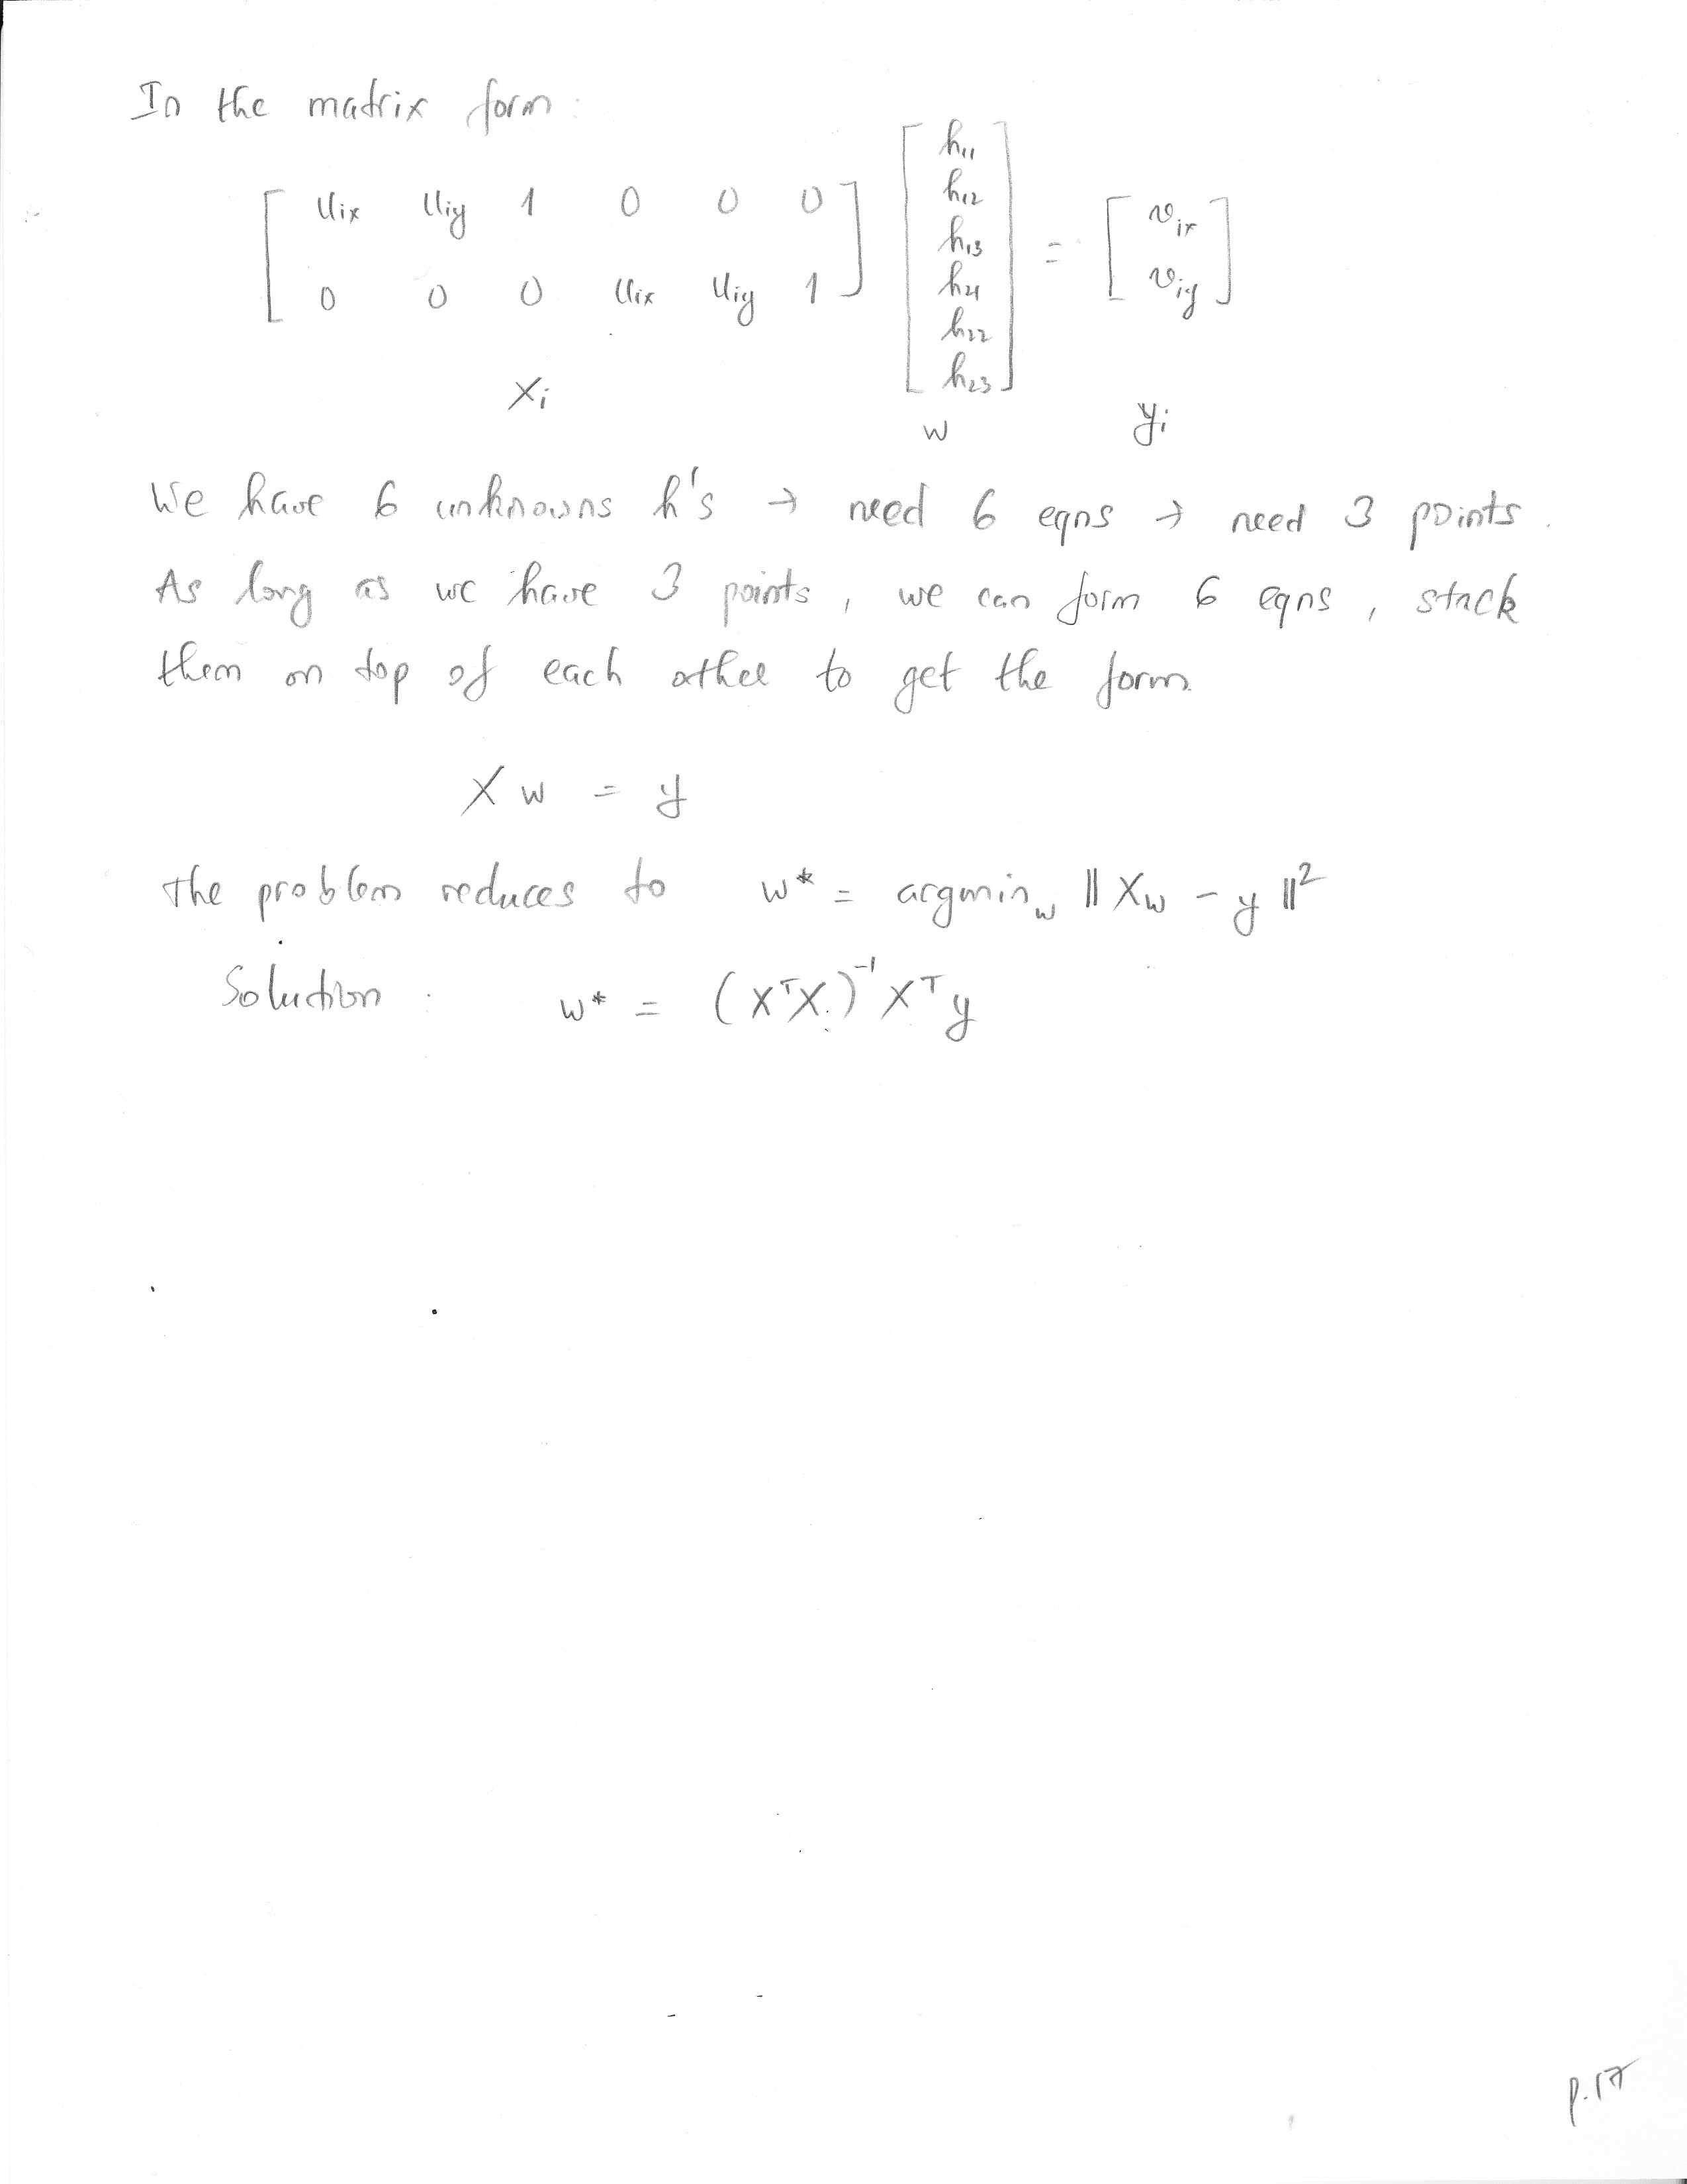 In the matrix form:
[ u_ix u_iy 1 0 0 0 ] [ h_11 ] = [ v_ix ]
[ 0 0 0 u_ix u_iy 1 ] [ h_12 ] [ v_iy ]
h_13
h_21
h_22
h_23
X_i w y_i
We have 6 unknowns h's → need 6 eqns → need 3 points.
As long as we have 3 points, we can form 6 eqns, stack
them on top of each other to get the form
X w = y
The problem reduces to w* = argmin_w || Xw - y ||²
Solution: w* = (XᵀX)⁻¹ Xᵀ y
p.17